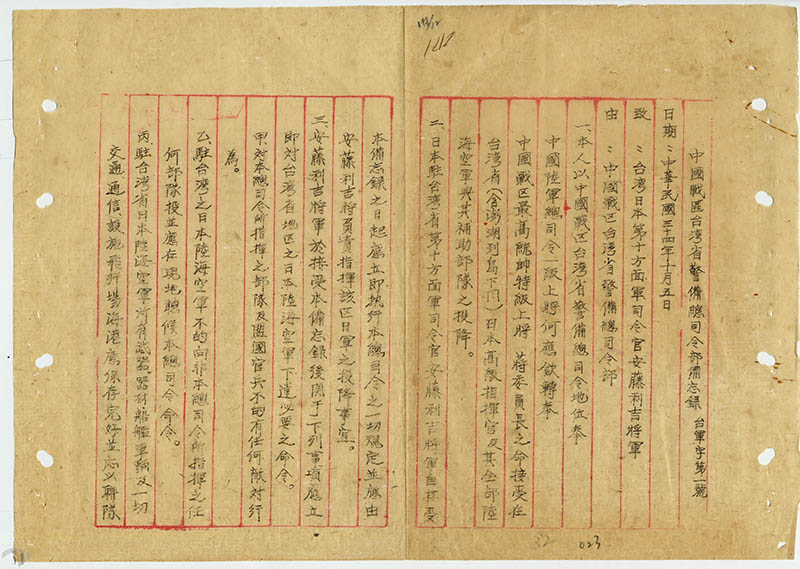 中國戰區台湾省警備總司令部備忘錄 台軍字第一號
日期：中華民國三十四年十月五日
致：台湾日本第十方面軍司令官安藤利吉將軍
由：中國戰區台湾省警備總司令部
一、本人以中國戰區台湾省警備總司令地位奉
中國陸軍總司令一級上將何應欽轉奉
中國戰区最高統帥特級上將 蔣委員長之命接受在
台湾省（含澎湖列島下同）日本高級指揮官及其全部陸
海空軍與其補助部隊之投降。
二、日本駐台湾省第十方面軍司令官安藤利吉將軍自接受
本備忘錄之日起應立即执行本總司令之一切規定並應由
安藤利吉將負責指揮該区日軍之投降事宜。
三、安藤利吉將軍於接受本備忘錄後関于下列事項應立
即対台湾省地区之日本陸海空軍下達必要之命令。
甲、对本總司令所指揮之部队及盟國官兵不的有任何敵对行
為。
乙、駐台湾之日本陸海空軍不的向非本總司令所指揮之任
何部隊投並應在現地聽候本總司令命令。
丙、駐台湾省日本陸海空軍所有武器器材船艦車輛及一切
交通通信設施飛行場海港應保存完好並应以聯隊
1212
32 023
31